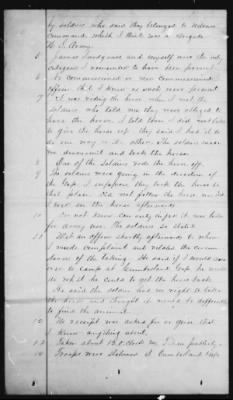 by soldiers who said they belonged to
command, which I think was a Brigade
U. S. Army.
5 James and myself were the only
persons I remember to have been present.
6 No commissioned or non commissioned
officer that I know of was present
7 I was riding the horse when I met the
soldiers who told me they were obliged to
have the horse. I told them I did not like
to give the horse up. they said I had it to
do one way or the other. The soldiers made
me dismount and took the horse.
8 One of the Soldiers rode the horse off.
9 The soldiers were going in the direction of
the Gap. I suppose they took the horse to
that place. Did not follow the horse nor did
I see the horse afterwards
10 Do not know can only infer it was taken
for Army use. The soldiers so stated
11 Met an officer shortly afterwards to whom
I made complaint and related the circum
stances of the taking. He said if I would come
over to camp at Cumberland Gap he would
do what he could to get the horse back.
He said the soldier had no right to take
the horse and thought it would be difficult
to find the
12 No receipt was asked for or given that
I know anything about.
13 Taken about 12 O.Clock M,
14 Troops were stationed at Cumberland Gap